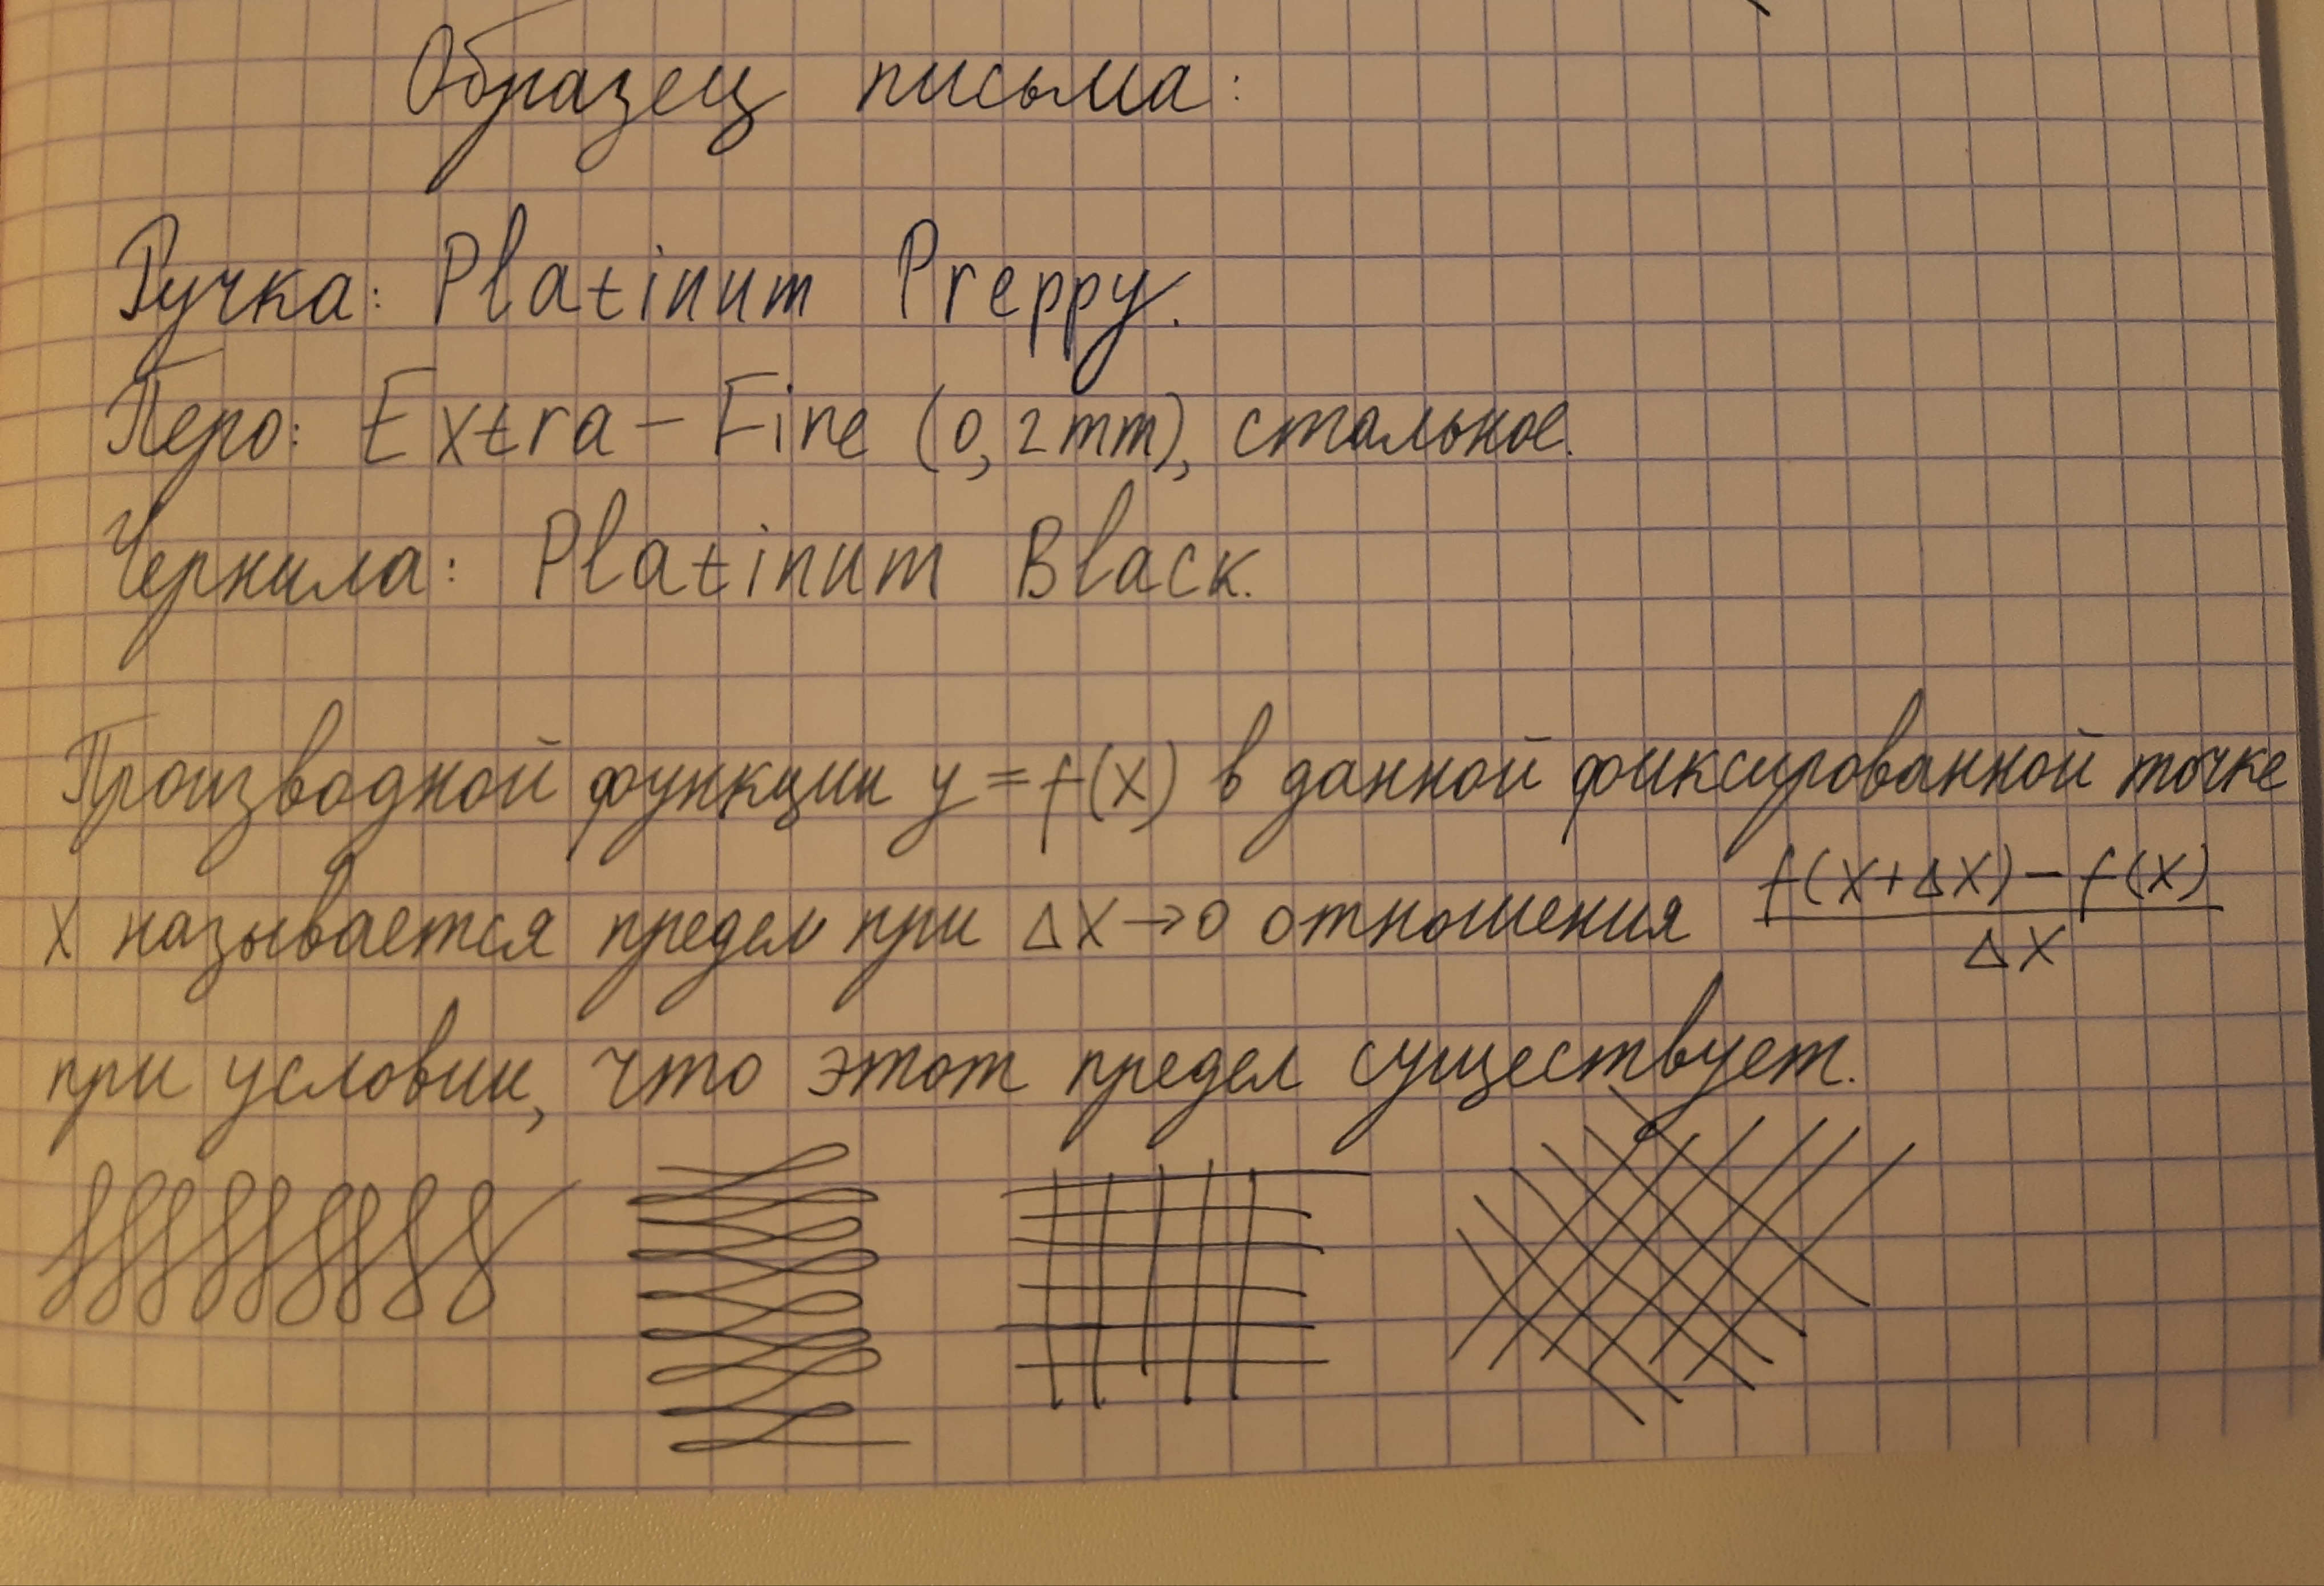 Образец письма:
Ручка: Platinum Preppy.
Перо: Extra-Fine (0,2mm), стальное.
Чернила: Platinum Black.
Производной функции y=f(x) в данной фиксированной точке
x называется предел при Δx→0 отношения f(x+Δx)-f(x) / Δx
при условии, что этот предел существует.